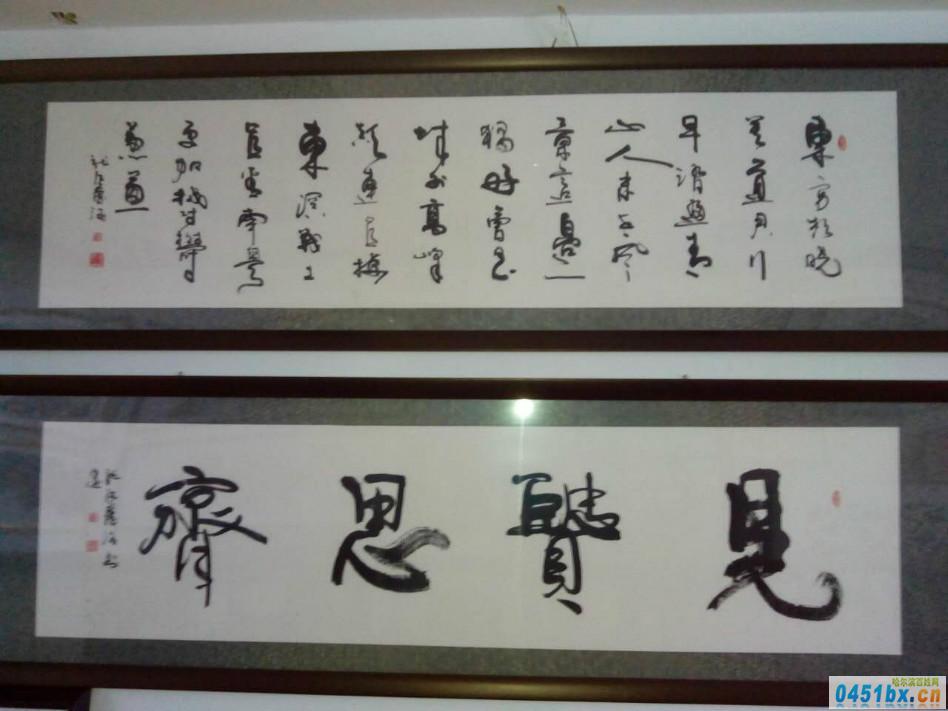 東方欲曉
莫道君行
早踏遍青
山人未老風
景這邊
獨好會昌
城外高峰
顛連直接
東溟戰士
指看南粵
更加鬱鬱
葱葱
見賢思齊
哈尔滨百姓网
0451bx.cn